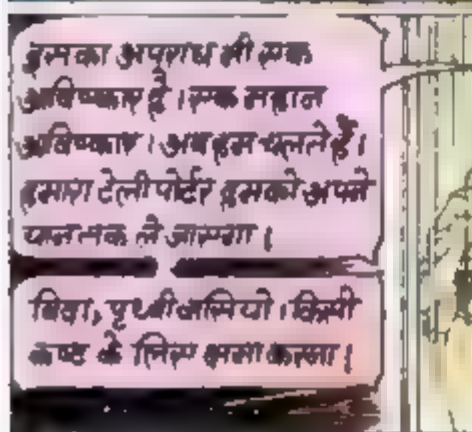 इसका अपराध भी एक
अविष्कार है। एक महान
अविष्कार। अब हम चलते हैं।
हमारा टेलीपोर्टर हमको अपने
यान तक ले जाएगा।
विदा, पृथ्वीवासियो। किसी
कष्ट के लिए क्षमा करना।